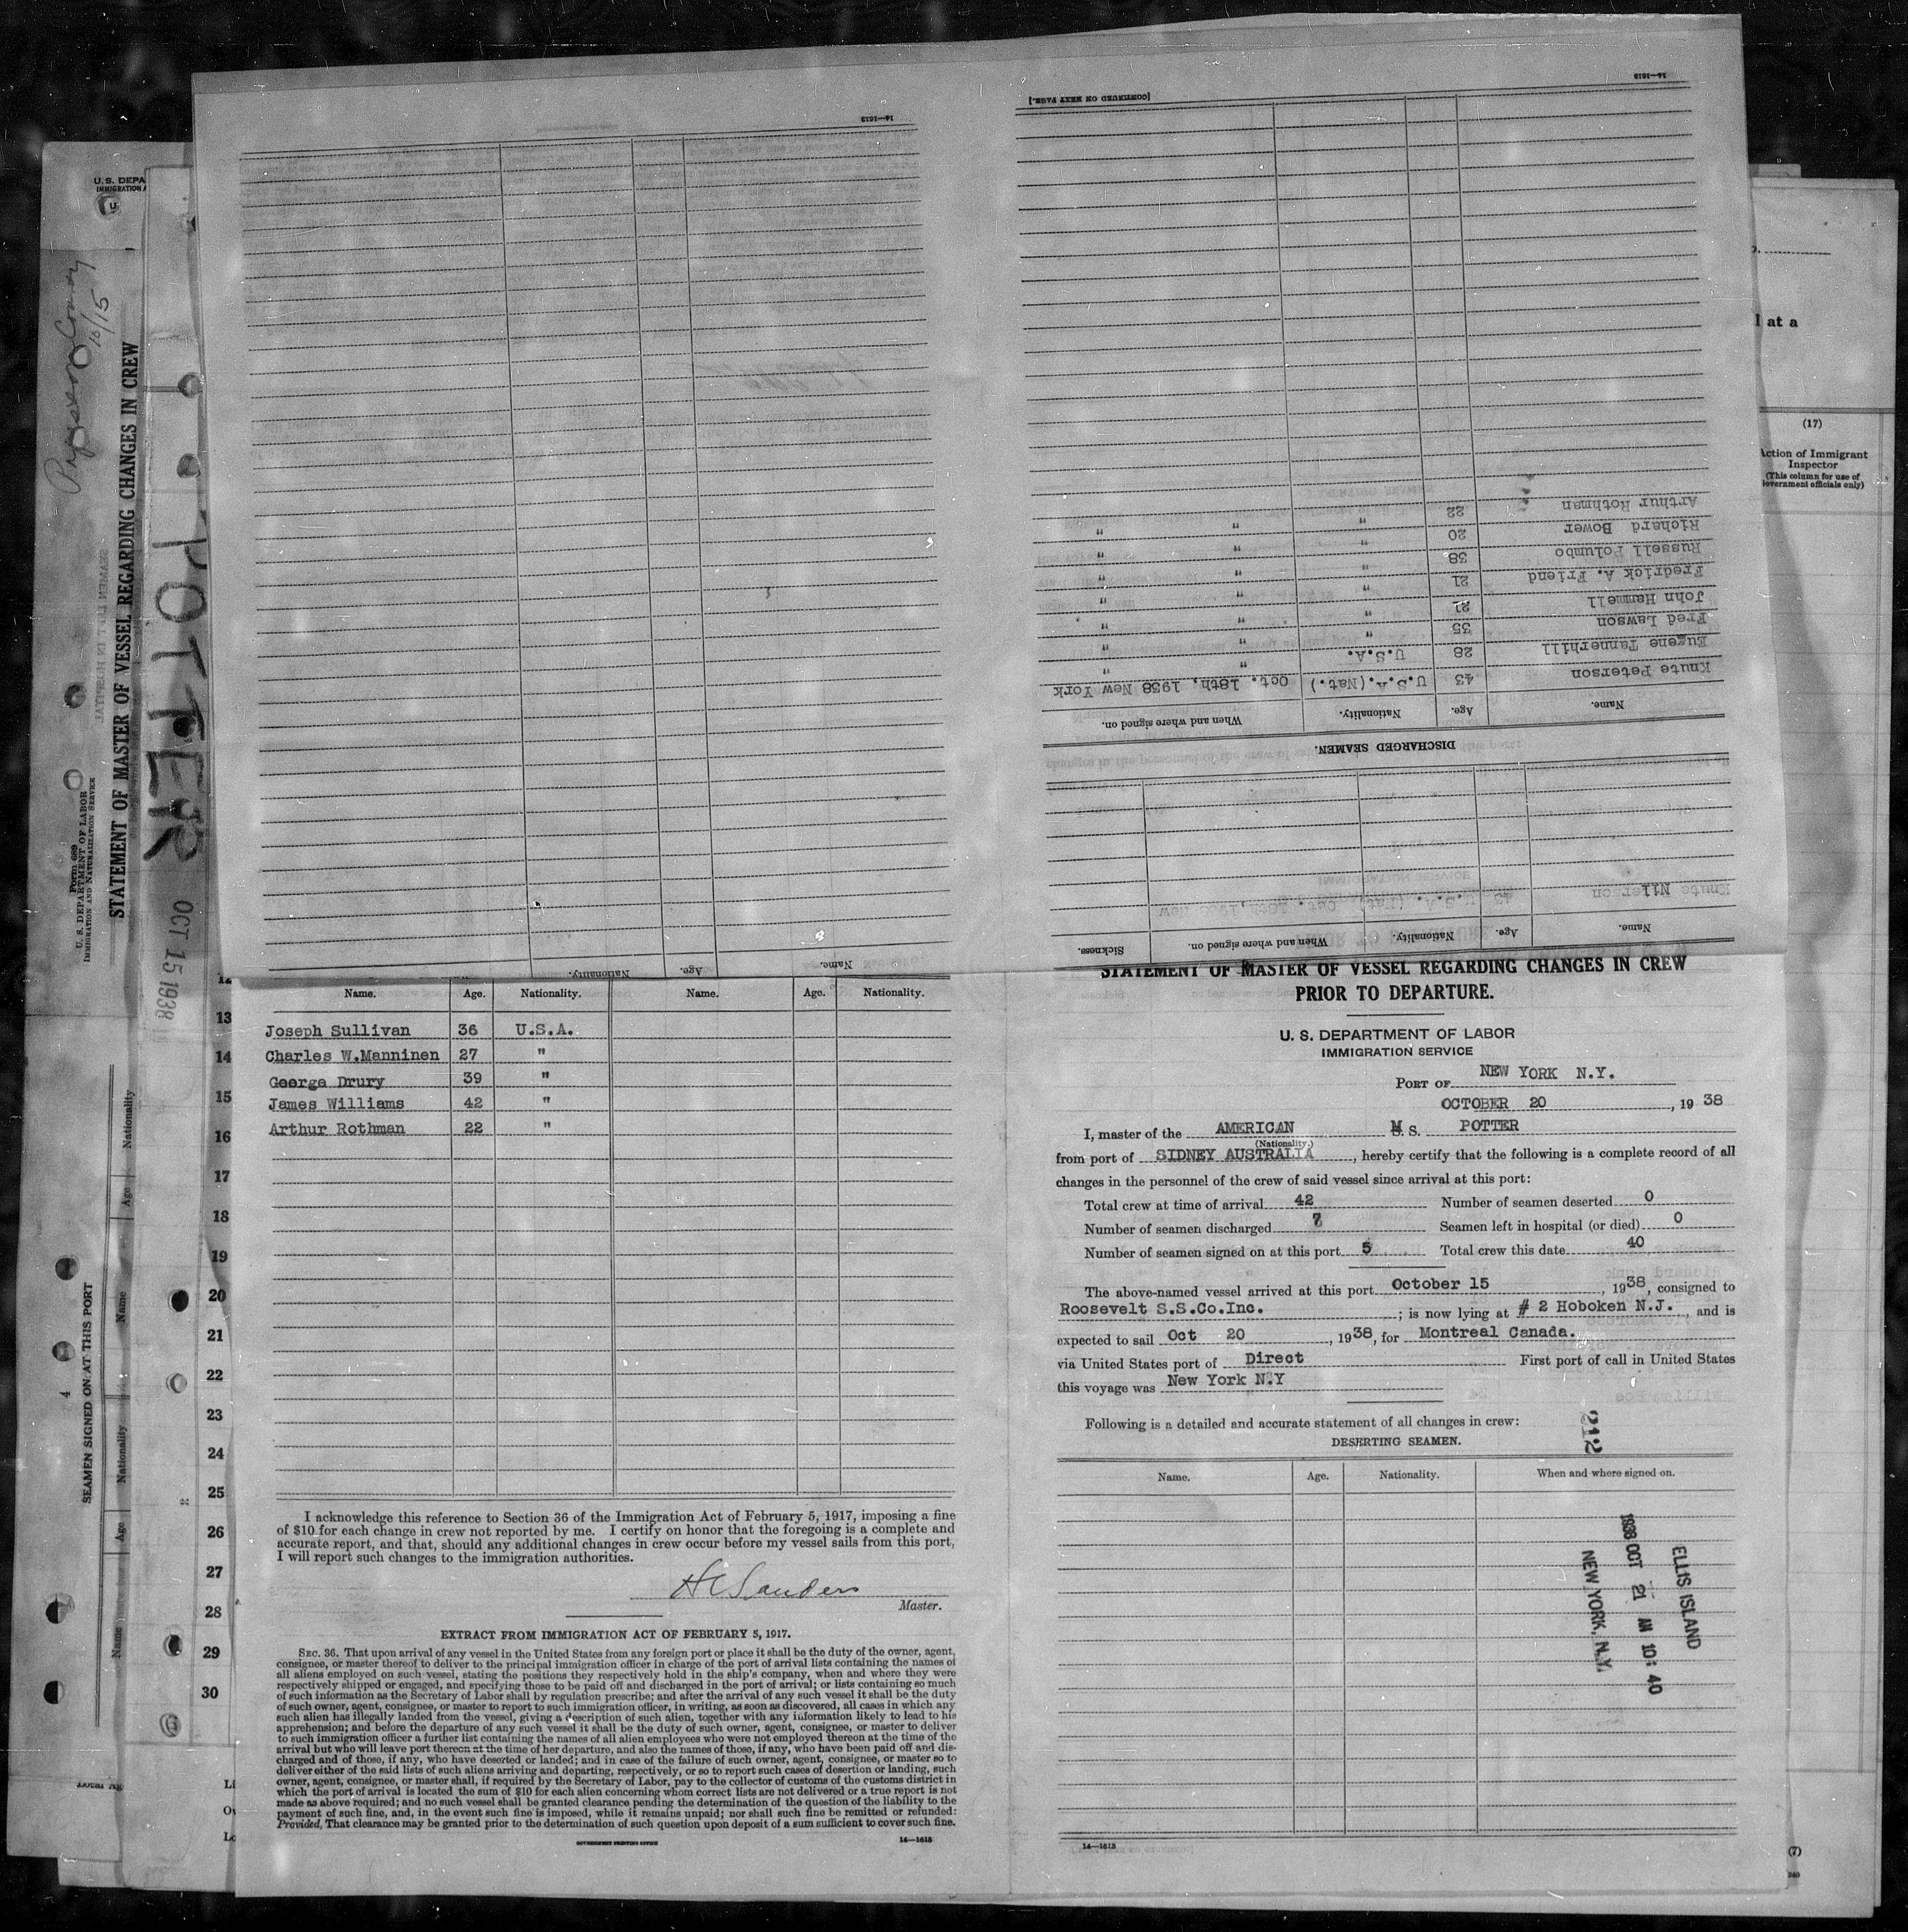 14—1613
14—1613
[CONTINUED ON NEXT PAGE.]
Arthur Rothman 22 " " "
Richard Bower 20 " " "
Russell Polumbo 38 " " "
Fredrick A. Friend 21 " " "
John Hammell 21 " " "
Fred Lawson 35 " " "
Eugene Tannerhill 28 U.S.A. " "
Knute Peterson 43 U.S.A.(Nat.) Oct. 18th, 1938 New York
Name. Age. Nationality. When and where signed on.
DISCHARGED SEAMEN.
Name. Age. Nationality. When and where signed on. Sickness.
Name. Age. Nationality.
U.S. DEPA
IMMIGRATION A
10/15
Form 689
U. S. DEPARTMENT OF LABOR
IMMIGRATION AND NATURALIZATION SERVICE
STATEMENT OF MASTER OF VESSEL REGARDING CHANGES IN CREW
SEAMEN SIGNED ON AT THIS PORT
Name Age Nationality Name Age Nationality
4
POTTER
OCT 15 1938
l at a
(17)
Action of Immigrant
Inspector
(This column for use of
Government officials only)
12
13
14
15
16
17
18
19
20
21
22
23
24
25
26
27
28
29
30
Li
Ow
Lo
(7)
Name. Age. Nationality. Name. Age. Nationality.
Joseph Sullivan 36 U.S.A.
Charles W.Manninen 27 "
George Drury 39 "
James Williams 42 "
Arthur Rothman 22 "
I acknowledge this reference to Section 36 of the Immigration Act of February 5, 1917, imposing a fine
of $10 for each change in crew not reported by me. I certify on honor that the foregoing is a complete and
accurate report, and that, should any additional changes in crew occur before my vessel sails from this port,
I will report such changes to the immigration authorities.
HC Sanders
Master.
EXTRACT FROM IMMIGRATION ACT OF FEBRUARY 5, 1917.
SEC. 36. That upon arrival of any vessel in the United States from any foreign port or place it shall be the duty of the owner, agent,
consignee, or master thereof to deliver to the principal immigration officer in charge of the port of arrival lists containing the names of
all aliens employed on such vessel, stating the positions they respectively hold in the ship's company, when and where they were
respectively shipped or engaged, and specifying those to be paid off and discharged in the port of arrival; or lists containing so much
of such information as the Secretary of Labor shall by regulation prescribe; and after the arrival of any such vessel it shall be the duty
of such owner, agent, consignee, or master to report to such immigration officer, in writing, as soon as discovered, all cases in which any
such alien has illegally landed from the vessel, giving a description of such alien, together with any information likely to lead to his
apprehension; and before the departure of any such vessel it shall be the duty of such owner, agent, consignee, or master to deliver
to such immigration officer a further list containing the names of all alien employees who were not employed thereon at the time of the
arrival but who will leave port thereon at the time of her departure, and also the names of those, if any, who have been paid off and dis-
charged and of those, if any, who have deserted or landed; and in case of the failure of such owner, agent, consignee, or master so to
deliver either of the said lists of such aliens arriving and departing, respectively, or so to report such cases of desertion or landing, such
owner, agent, consignee, or master shall, if required by the Secretary of Labor, pay to the collector of customs of the customs district in
which the port of arrival is located the sum of $10 for each alien concerning whom correct lists are not delivered or a true report is not
made as above required; and no such vessel shall be granted clearance pending the determination of the question of the liability to the
payment of such fine, and, in the event such fine is imposed, while it remains unpaid; nor shall such fine be remitted or refunded:
Provided, That clearance may be granted prior to the determination of such question upon deposit of a sum sufficient to cover such fine.
GOVERNMENT PRINTING OFFICE 14—1613
STATEMENT OF MASTER OF VESSEL REGARDING CHANGES IN CREW
PRIOR TO DEPARTURE.
U. S. DEPARTMENT OF LABOR
IMMIGRATION SERVICE
PORT OF NEW YORK N.Y.
OCTOBER 20, 1938
I, master of the AMERICAN M. S. POTTER
(Nationality.)
from port of SIDNEY AUSTRALIA, hereby certify that the following is a complete record of all
changes in the personnel of the crew of said vessel since arrival at this port:
Total crew at time of arrival 42 Number of seamen deserted 0
Number of seamen discharged 7 Seamen left in hospital (or died) 0
Number of seamen signed on at this port 5 Total crew this date 40
The above-named vessel arrived at this port October 15, 1938, consigned to
Roosevelt S.S.Co.Inc.; is now lying at # 2 Hoboken N.J., and is
expected to sail Oct 20, 1938, for Montreal Canada.
via United States port of Direct First port of call in United States
this voyage was New York N.Y
Following is a detailed and accurate statement of all changes in crew:
DESERTING SEAMEN.
212
Name. Age. Nationality. When and where signed on.
ELLIS ISLAND
1938 OCT 21 AM 10:40
NEW YORK, N.Y.
14—1613